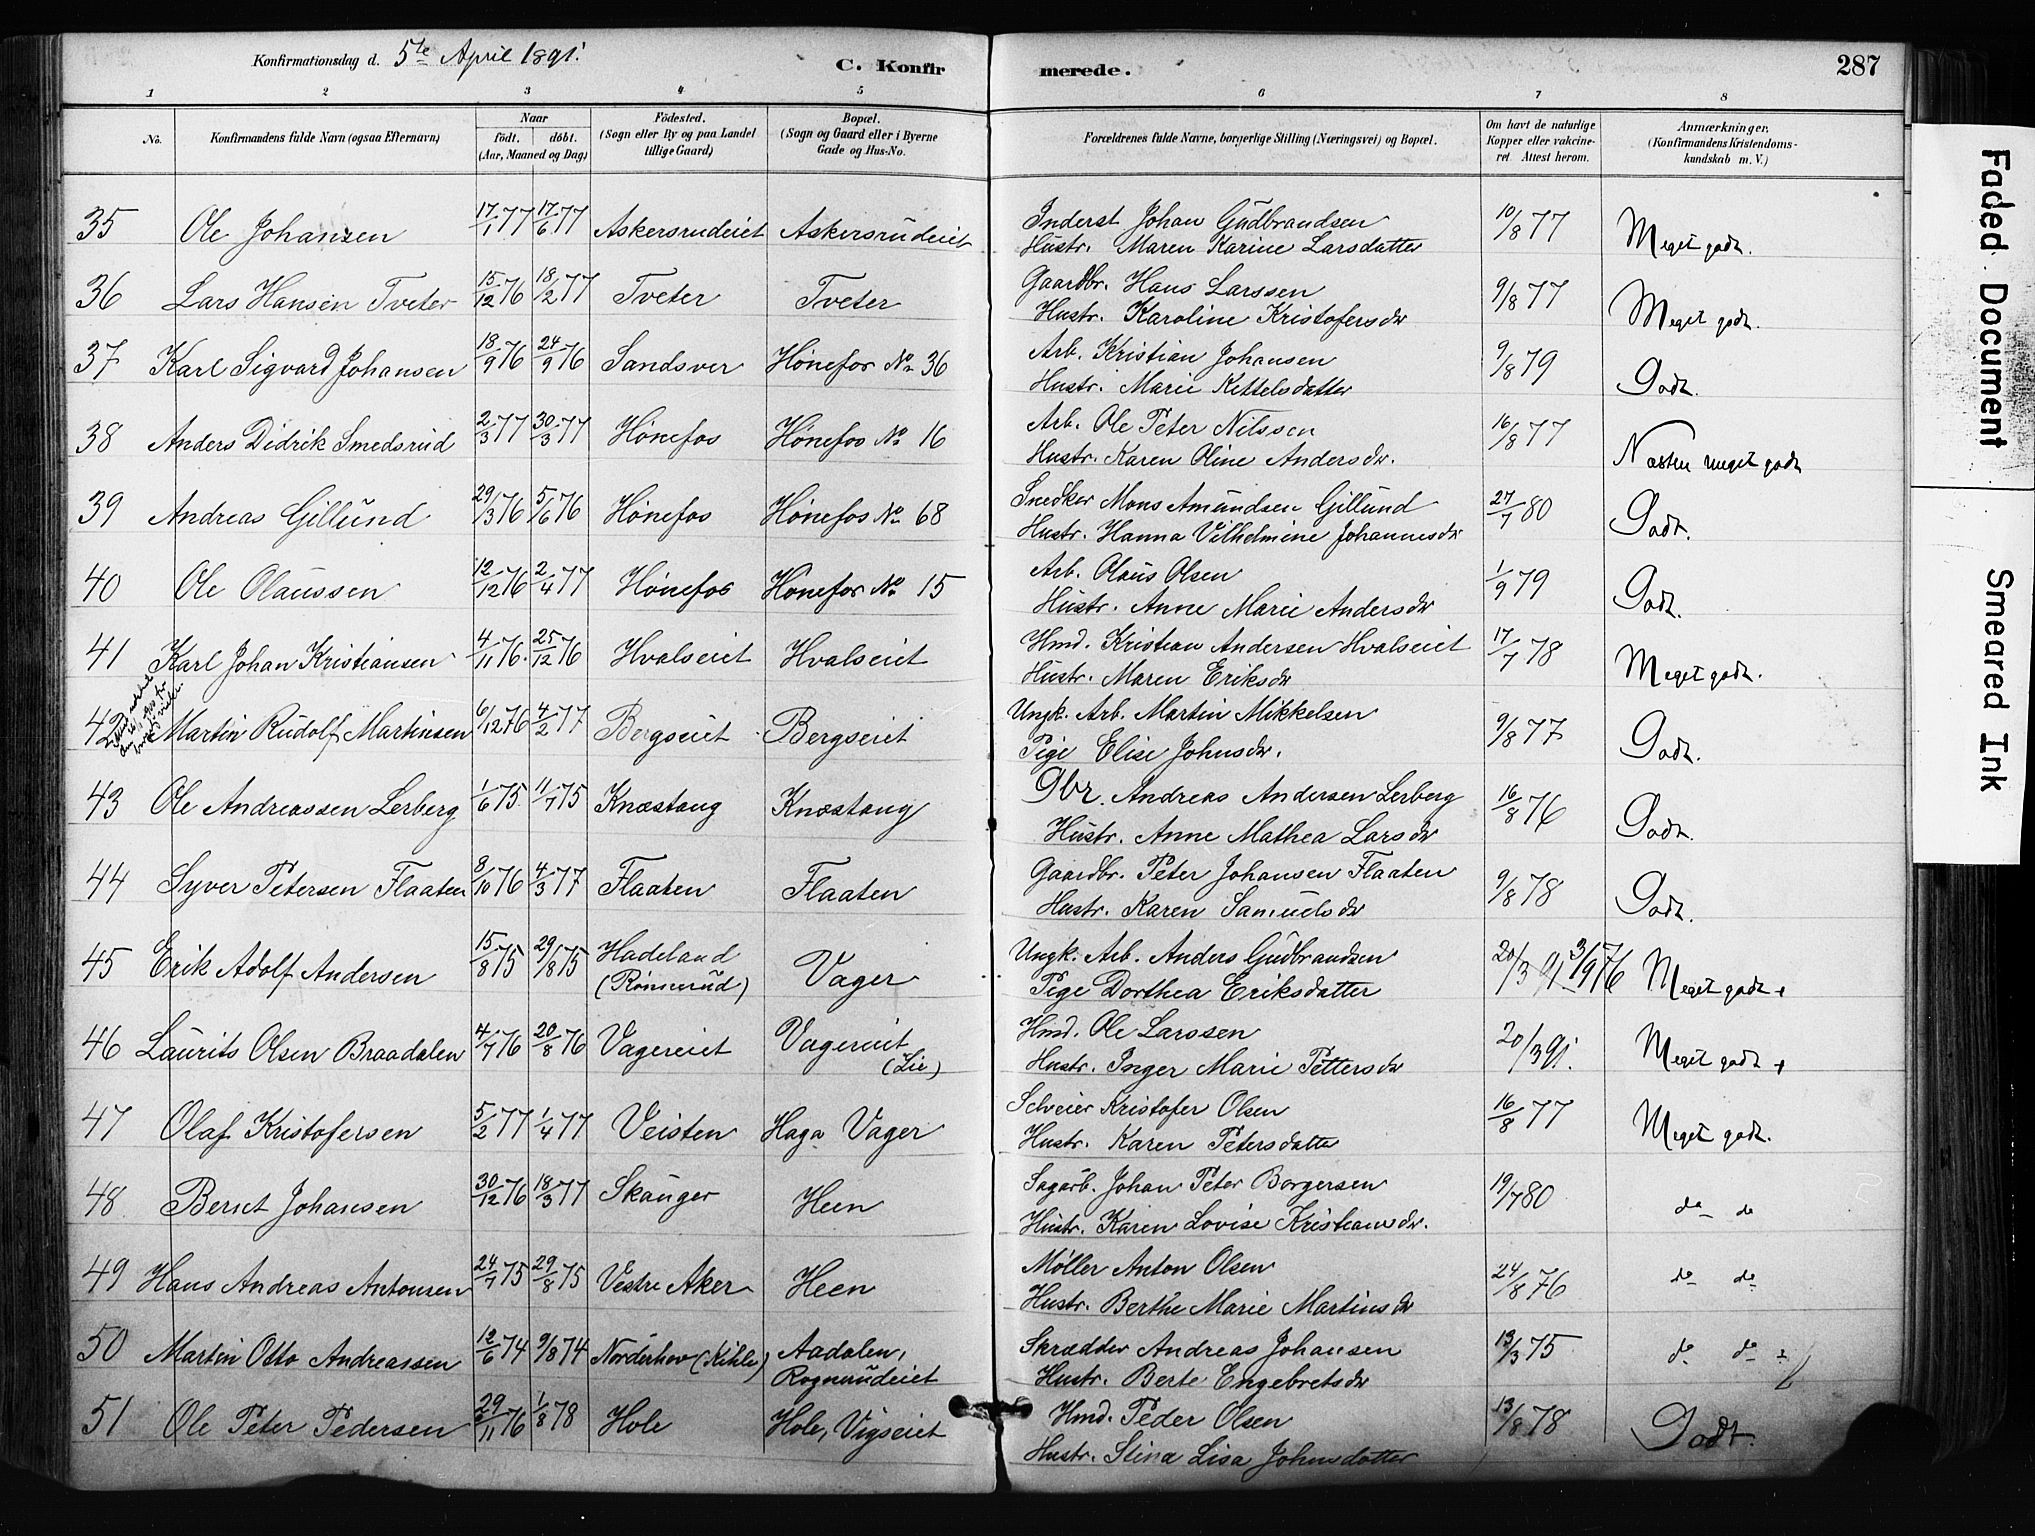 Konfirmationsdag d. 5te April 1891.
C. Konfirmerede.
287
1 2 3 4 5 6 7 8
No.
Konfirmandens fulde Navn (ogsaa Efternavn)
Naar
födt. döbt.
(Aar, Maaned og Dag)
Födested.
(Sogn eller By og paa Landet
tillige Gaard)
Bopæl.
(Sogn og Gaard eller i Byerne
Gade og Hus-No.
Forældrenes fulde Navne, borgerlige Stilling (Næringsvei) og Bopæl.
Om havt de naturlige
Kopper eller vakcine-
ret. Attest herom.
Anmærkninger.
(Konfirmandens Kristendoms-
kundskab m. V.)
35 Ole Johansen 17/1 77 17/6 77 Askersrudeiet Askersrudeiet Inderst Johan Gudbrandsen 10/8 77 Meget godt.
Hustr. Maren Karine Larsdatter
36 Lars Hansen Tveter 15/12 76 18/2 77 Tveter Tveter Gaardbr. Hans Larssen 9/8 77 Meget godt.
Hustr. Karoline Kristofersdr
37 Karl Sigvard Johansen 18/9 76 24/9 76 Sandsver Hönefos No 36 Arb. Kristian Johansen 9/8 79 Godt.
Hustr. Marie Kittelsdatter
38 Anders Didrik Smedsrud 2/3 77 30/3 77 Hönefos Hönefos No 16 Arb. Ole Peter Nilssen 16/8 77 Næsten meget godt
Hustr. Karen Oline Andersdr.
39 Andreas Gillund 29/3 76 5/6 76 Hönefos Hönefos No 68 Snedker Mons Amundsen Gillund 27/7 80 Godt.
Hustr. Hanna Vilhelmine Johannesdr
40 Ole Olaussen 12/12 76 2/4 77 Hönefos Hönefos No 15 Arb. Olaus Olsen 1/9 79 Godt.
Hustr. Anne Marie Andersdr
41 Karl Johan Kristiansen 4/11 76. 25/12 76 Hvalseiet Hvalseiet Hmd. Kristian Andersen Hvalseiet 17/7 78 Meget godt.
Hustr. Maren Eriksdr
42 Martin Rudolf Martinsen 6/12 76 4/2 77 Bergseiet Bergseiet Ungk. Arb. Martin Mikkelsen 9/8 77 Godt.
Pige Elise Johnsdr.
43 Ole Andreassen Lerberg 1/6 75 11/7 75 Knæstang Knæstang Gbr. Andreas Andersen Lerberg 16/8 76 Godt.
Hustr. Anne Mathea Larsdr
44 Syver Petersen Flaaten 8/10 76 4/3 77 Flaaten Flaaten Gaardbr. Peter Johansen Flaaten 9/8 78 Godt.
Hustr. Karen Samuelsdr
45 Erik Adolf Andersen 15/8 75 29/8 75 Hadeland (Rönnerud) Vager Ungk. Arb. Anders Gudbrandsen 20/3 91 3/9 76 Meget godt +
Pige Dorthea Eriksdatter
46 Laurits Olsen Braadalen 4/7 76 20/8 76 Vagereiet Vagereiet (Lie) Hmd. Ole Larssen 20/3 91. Meget godt +
Hustr. Inger Marie Pettersdr
47 Olaf Kristofersen 5/2 77 1/4 77 Veisten Haga Vager Selveier Kristofer Olsen 16/8 77 Meget godt.
Hustr. Karen Petersdatter
48 Bernt Johansen 30/12 76 18/3 77 Skauger Heen Sagarb. Johan Peter Borgersen 19/7 80 do do
Hustr. Karen Lovise Kristiansdr.
49 Hans Andreas Antonsen 24/7 75 29/8 75 Vestre Aker Heen Möller Anton Olsen 24/8 76 do do
Hustr. Berthe Marie Martinsdr
50 Martin Otto Andreassen 12/6 74 9/8 74 Norderhov (Kihle) Aadalen, Rognerudeiet Skrædder Andreas Johansen 13/3 75 do do
Hustr. Berte Engebretsdr
51 Ole Peter Pedersen 29/11 76 1/8 78 Hole Hole, Vigseiet Hmd. Peder Olsen 13/8 78 Godt.
Hustr. Stina Lisa Johnsdatter
Faded Document
Smeared Ink